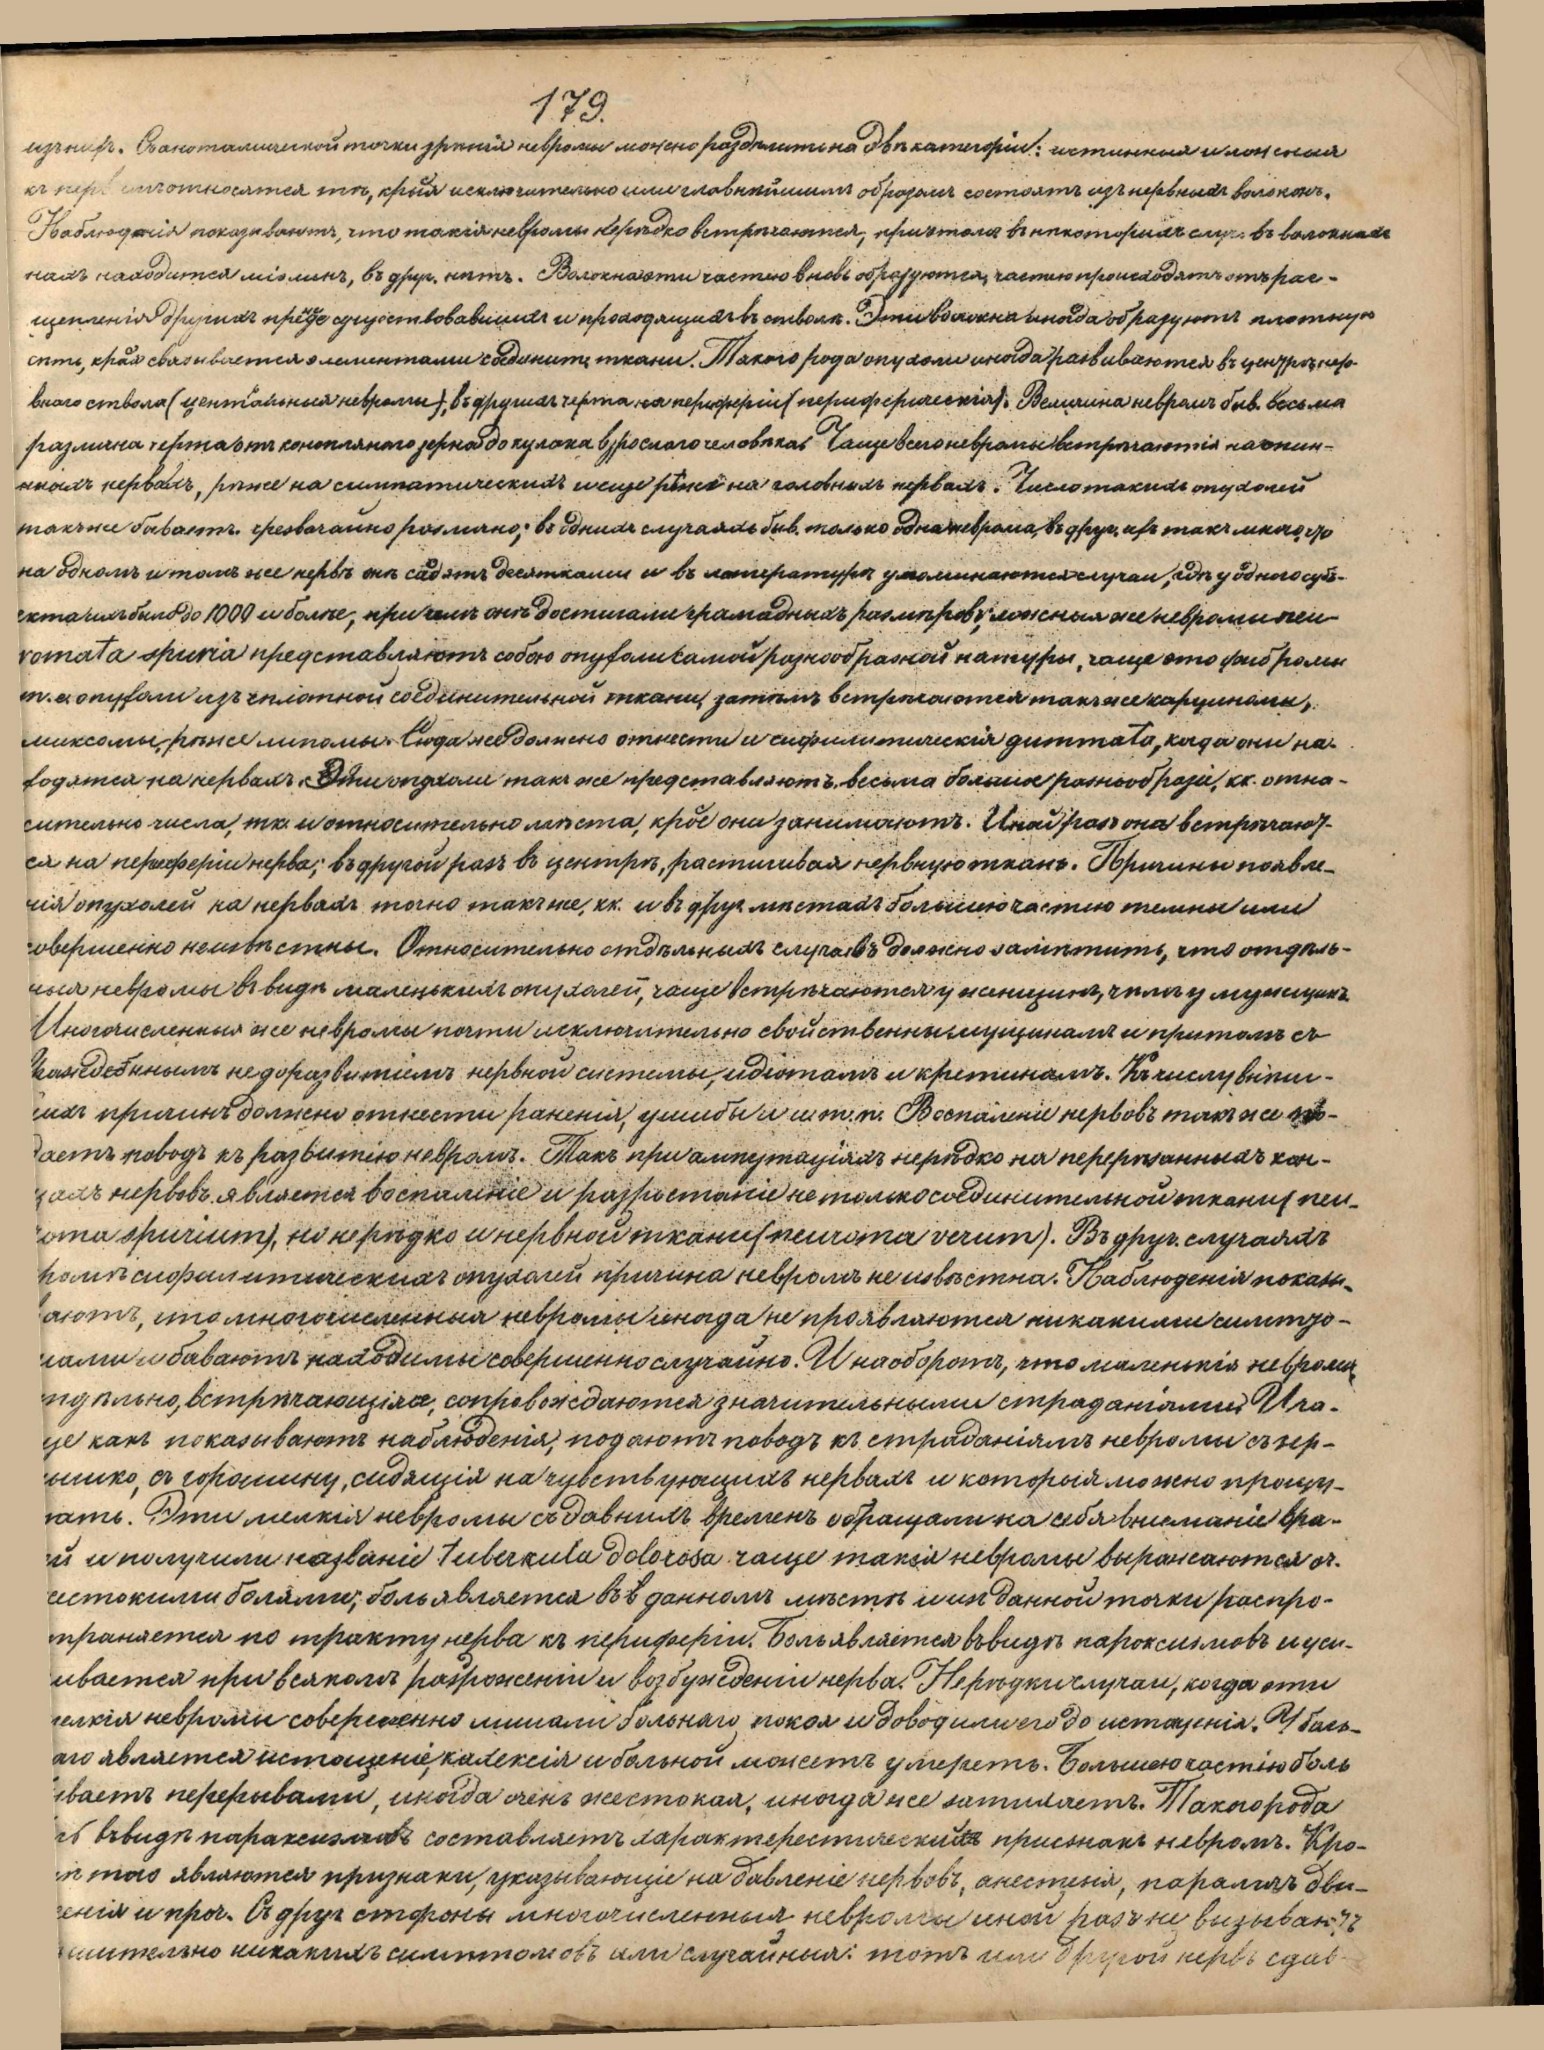 179.
изъ нихъ. Съ анатомической точки зрѣнія невромы можно раздѣлить на двѣ категоріи: истинныя и ложныя
къ перв относятся тѣ, крыя исключительно или главнѣйшимъ образомъ состоятъ изъ нервныхъ волоконъ.
Наблюденія показываютъ, что такія невромы нерѣдко встрѣчаются, причемъ въ нѣкоторыхъ случ. въ волокнахъ
нахъ находится міэлинъ, въ друг. нѣтъ. Волокна эти частью вновь образуются, частью происходятъ отъ рас-
щепленія другихъ прежде существовавшихъ и проходящихъ въ стволѣ. Эти волокна иногда образуютъ плотную
сѣть, края связывается элементами соединит. ткани. Такого рода опухоли иногда развиваются въ центрѣ нер-
внаго ствола (центральныя невромы), въ другихъ на периферіи (периферическія). Величина невромъ быв. весьма
различна отъ коноплянаго зерна до кулака взрослаго человѣка. Чаще всего невромы встрѣчаются на спин-
ныхъ нервахъ, рѣже на симпатическихъ и еще рѣже на головныхъ нервахъ. Число такихъ опухолей
также бываетъ чрезвычайно различно; въ однихъ случаяхъ быв. только одна неврома, въ друг. ихъ такъ много, что
на одномъ и томъ же нервѣ онѣ сидятъ десятками и въ литературѣ упоминаются случаи, гдѣ у одного субъ-
екта ихъ было до 1000 и болѣе, при чемъ онѣ достигали громадныхъ размѣровъ; ложныя же невромы neu
romata spuria представляютъ собою опухоли самой разнообразной натуры, чаще это фибромы
т. е. опухоли изъ плотной соединительной ткани, затѣмъ встрѣчаются также карциномы,
миксомы, рѣже липомы. Сюда же должно отнести и сифилитическія gummata, когда они на-
ходятся на нервахъ. Эти опухоли такъ же представляютъ весьма большое разнообразіе, кк. отно-
сительно числа, тк. и относительно мѣста, крое они занимаютъ. Иной разъ она встрѣчают-
ся на периферіи нерва; въ другой разъ въ центрѣ, растягивая нервную ткань. Причины появле-
нія опухолей на нервахъ точно также, кк. и въ друг. мѣстахъ большею частью темны или
совершенно неизвѣстны. Относительно отдѣльныхъ случаевъ должно замѣтить, что отдѣль-
ныя невромы въ видѣ маленькихъ опухолей, чаще встрѣчаются у женщинъ, чѣмъ у мужчинъ.
Многочисленныя же невромы почти исключительно свойственны мущинамъ и притомъ съ
недоразвитіемъ нервной системы, идіотамъ и кретинамъ. Къ числу внѣш-
нихъ причинъ должно отнести раненія, ушибы и т. п. Воспаленіе нервовъ такъ же по-
даетъ поводъ къ развитію невромъ. Такъ при ампутаціяхъ нерѣдко на перерѣзанныхъ кон-
цахъ нервовъ является воспаленіе и разростаніе не только соединительной ткани (neu-
roma spurium), но нерѣдко и нервной ткани (neuroma verum). Въ друг. случаяхъ
кромѣ сифилитическихъ опухолей причина невромъ не извѣстна. Наблюденія показы-
ваютъ, что многочисленныя невромы иногда не проявляются никакими симпто-
мами и бываютъ находимы совершенно случайно. И наоборотъ, что маленькія невромы
отдѣльно встрѣчающіяся, сопровождаются значительными страданіями. И ча-
ще какъ показываютъ наблюденія, подаютъ поводъ къ страданіямъ невромы съ зер-
нышко, съ горошину, сидящія на чувствующихъ нервахъ и которыя можно прощу-
пать. Эти мелкія невромы съ давнихъ временъ обращали на себя вниманіе вра-
чей и получили названіе tuberkula dolorosa чаще такія невромы выражаются оч.
жестокими болями; боль является въ данномъ мѣстѣ и изъ данной точки распро-
страняется по тракту нерва къ периферіи. Боль является въ видѣ пароксизмовъ и уси-
ливается при всякомъ раздраженіи и возбужденіи нерва. Нерѣдки случаи, когда эти
мелкія невромы совершенно лишали больнаго покоя и доводили его до истощенія. У боль-
наго является истощеніе, кахексія и больной можетъ умереть. Большею частію боль
бываетъ перерывами, иногда очень жестокая, иногда же затихаетъ. Такого рода
боль въ видѣ параксизмовъ составляетъ характерестическій признакъ невромъ. Кро-
мѣ того являются признаки, указывающіе на давленіе нервовъ, анестезія, параличъ дви-
женія и проч. Съ друг. стороны многочисленныя невромы иной разъ не вызываютъ
рѣшительно никакихъ симптомовъ или случайныя: тотъ или другой нервъ сдав-